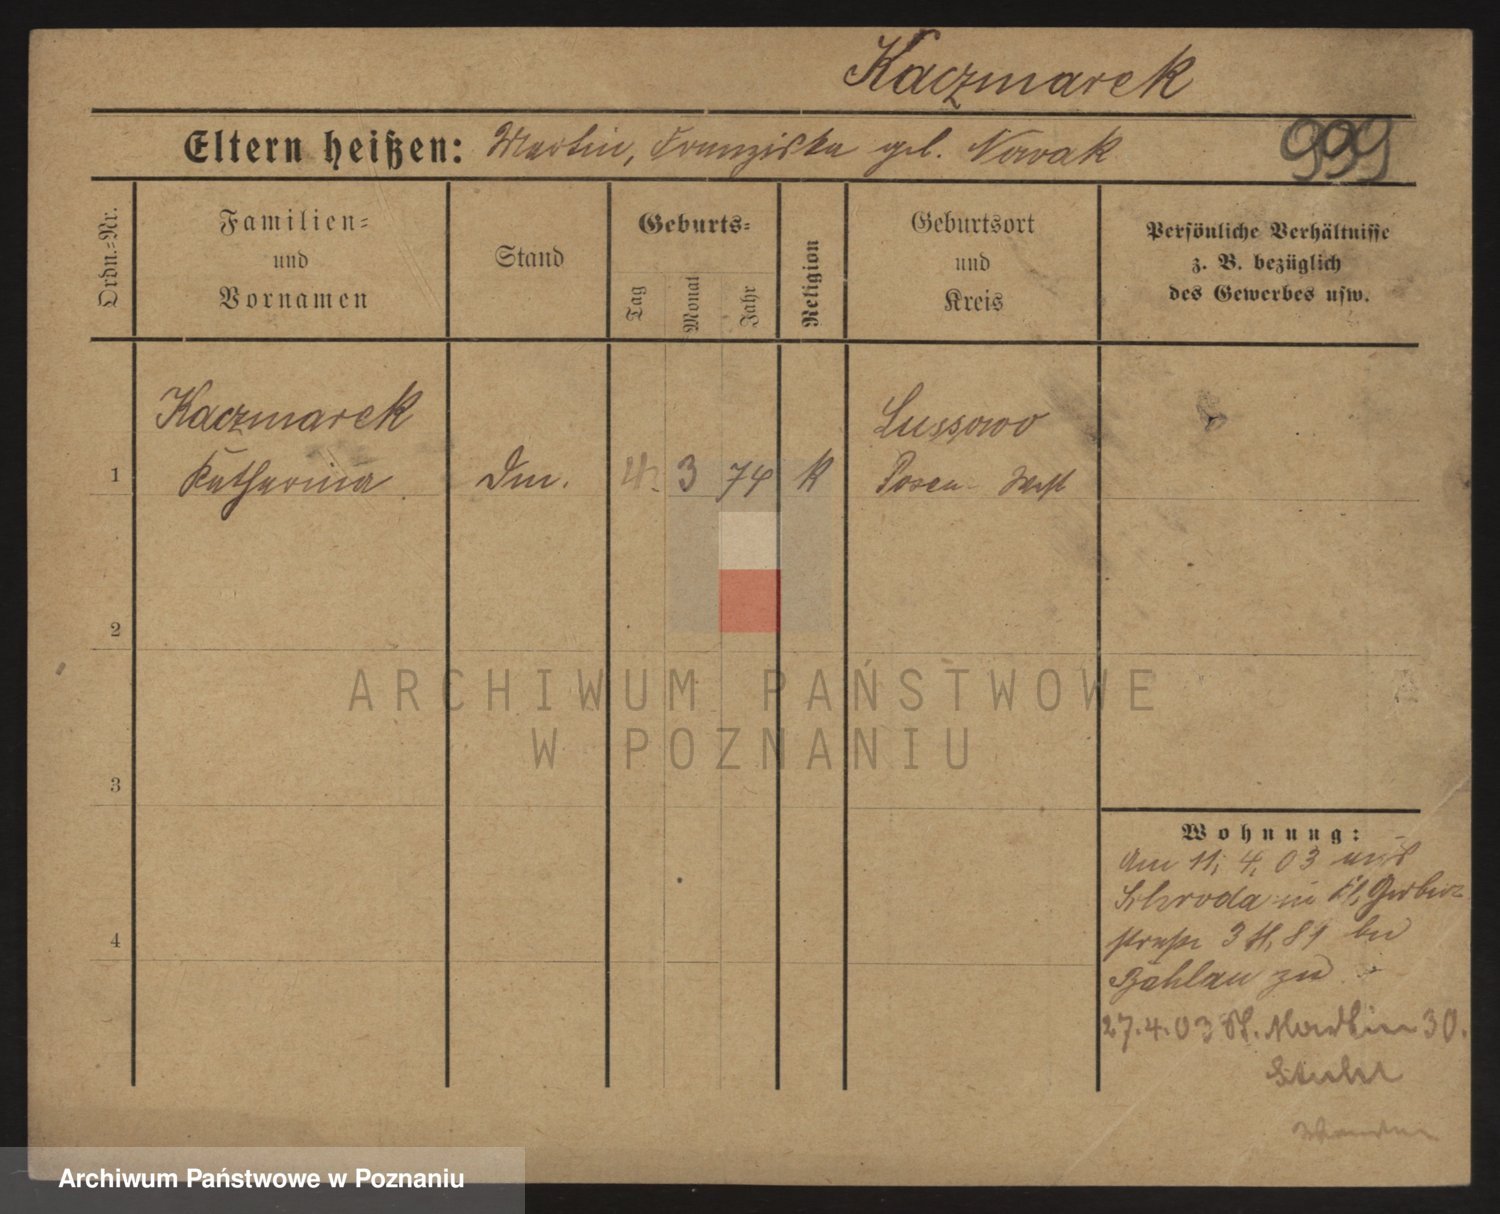 Kaczmarek
Eltern heißen: Martin, Franziska geb. Nowak
999
Ordn.=Nr.
Familien=
und
Vornamen
Stand
Geburts=
Tag
Monat
Jahr
Religion
Geburtsort
und
Kreis
Persönliche Verhältnisse
z. B. bezüglich
des Gewerbes usw.
Kaczmarek
Lussowo
1 Katharina Dm. 3 74 K Posen West
2
3
4
Wohnung:
Am 11. 4. 03 aus
Schroda in Kl. Gerber
straße 3 bei
zu
27.4.03 St. Martin 30.
ARCHIWUM PAŃSTWOWE
W POZNANIU
Archiwum Państwowe w Poznaniu